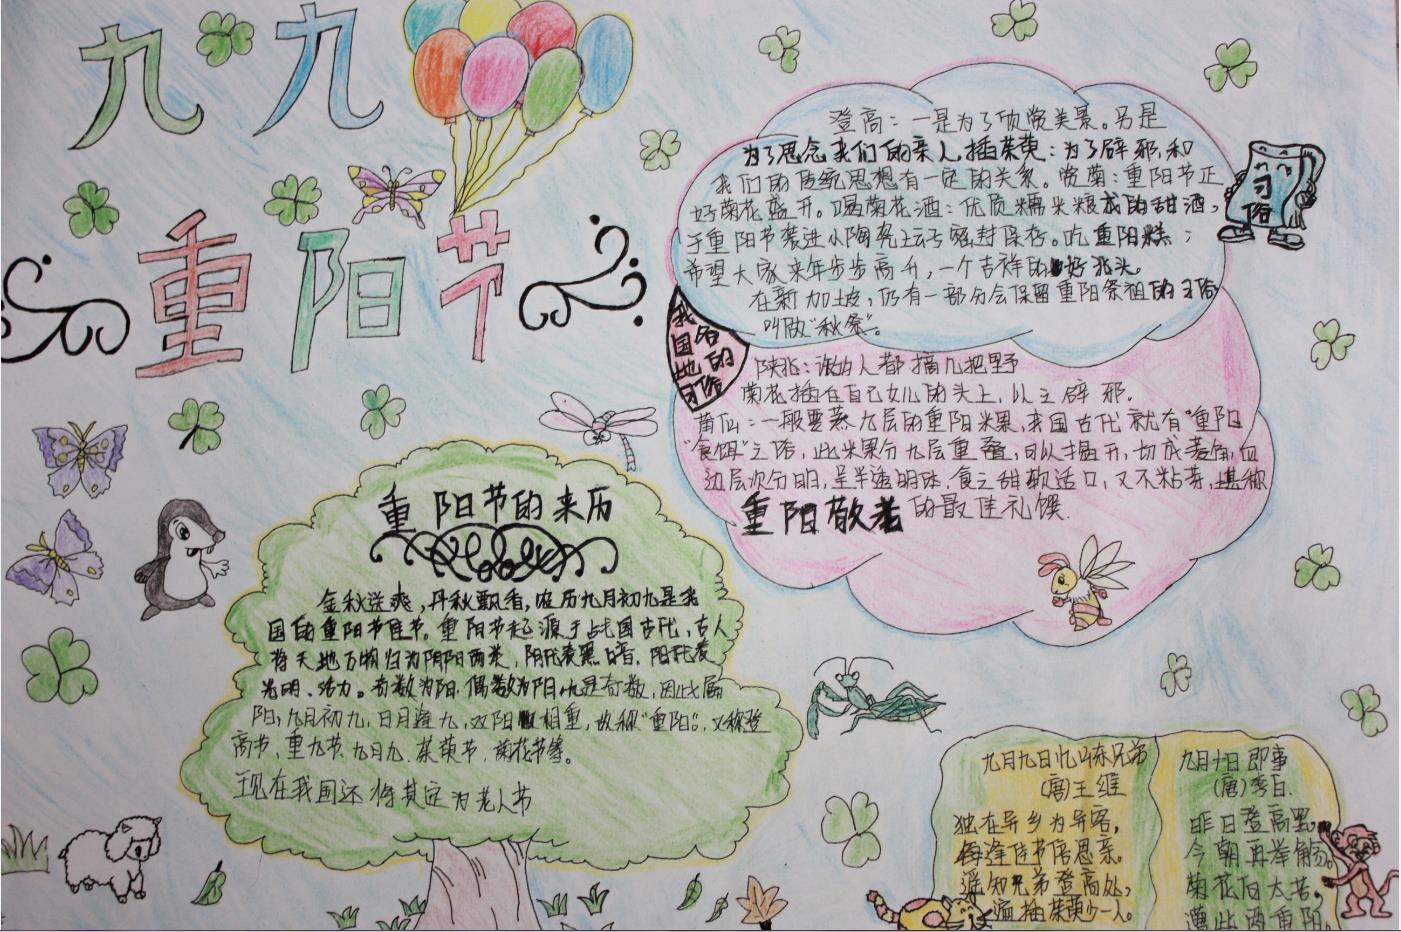 九九
重阳节
登高：一是为了欣赏美景。另是
为了思念我们的亲人，插茱萸：为了辟邪，和
我们的传统思想有一定的关系。赏菊：重阳节正
好菊花盛开。喝菊花酒：优质糯米粮成的甜酒，
于重阳节装进小陶瓷坛子密封保存。吃重阳糕：
希望大家来年步步高升，一个吉祥的好兆头。
在新加坡，仍有一部分会保留重阳祭祖的习俗
叫做“秋祭”。
习俗
我国各地的习俗
陕北：人都摘几把野
菊花插在自己女儿的头上，以之辟邪。
莆仙：一般要蒸九层的重阳米果，我国古代就有“重阳
“食饵”之俗，此米果分九层重叠，可以揭开，切成菱角，四
边层次分明，呈半透明体，食之甜软适口，又不粘牙，堪称
重阳敬老的最佳礼馔.
重阳节的来历
金秋送爽，丹秋飘香，农历九月初九是我
国的重阳节佳节。重阳节起源于战国古代，古人
将天地万物归为阴阳两类，阴代表黑暗，阳代表
光明、活力。奇数为阳，偶数为阳，九是奇数，因此属
阳，九月初九，日月逢九，双阳相重，故称“重阳”。又称登
高节、重九节、九月九、茱萸节、菊花节等。
现在我国还将其定为老人节
九月九日忆山东兄弟
(唐)王维
独在异乡为异客，
每逢佳节倍思亲。
遥知兄弟登高处，
遍插茱萸少一人。
九月十日即事
(唐)李白.
昨日登高罢，
今朝再举觞。
菊花何太苦，
遭此两重阳。